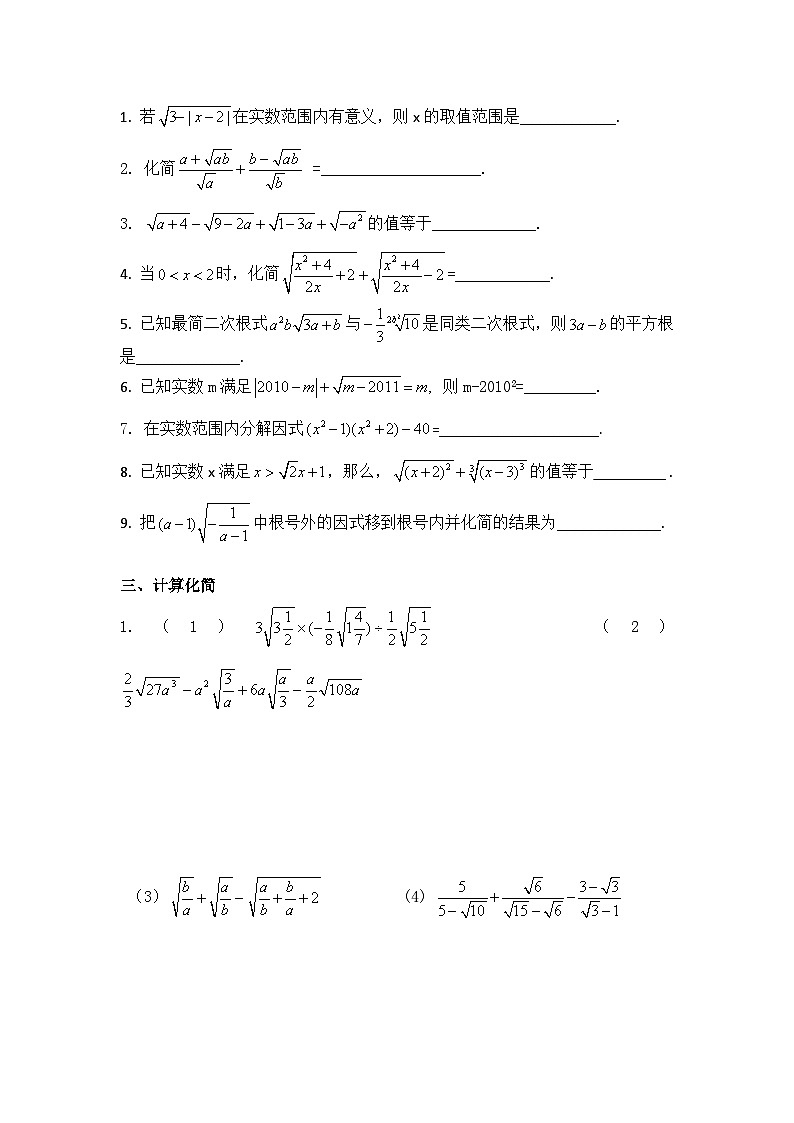 1. 若 √(3-|x-2|) 在实数范围内有意义，则 x 的取值范围是____________.
2. 化简 (a+√(ab))/√a + (b-√(ab))/√b =____________________.
3. √(a+4) - √(9-2a) + √(1-3a) + √(-a²) 的值等于_____________.
4. 当 0<x<2 时，化简 √((x²+4)/(2x)+2) + √((x²+4)/(2x)-2) =____________.
5. 已知最简二次根式 a²b√(3a+b) 与 -1/3 ²ᵇ√10 是同类二次根式，则 3a-b 的平方根
是_____________.
6. 已知实数 m 满足 |2010-m|+√(m-2011)=m, 则 m-2010²=_________.
7. 在实数范围内分解因式 (x²-1)(x²+2)-40 =____________________.
8. 已知实数 x 满足 x>√2x+1，那么， √((x+2)²) + ³√((x-3)³) 的值等于_________.
9. 把 (a-1)√(-1/(a-1)) 中根号外的因式移到根号内并化简的结果为_____________.
三、计算化简
1. （ 1 ） 3√(3 1/2) × (-1/8 √(1 4/7)) ÷ 1/2 √(5 1/2) （ 2 ）
2/3 √(27a³) - a²√(3/a) + 6a√(a/3) - a/2 √(108a)
（3） √(b/a) + √(a/b) - √(a/b + b/a + 2) （4） 5/(5-√10) + √6/(√15-√6) - (3-√3)/(√3-1)